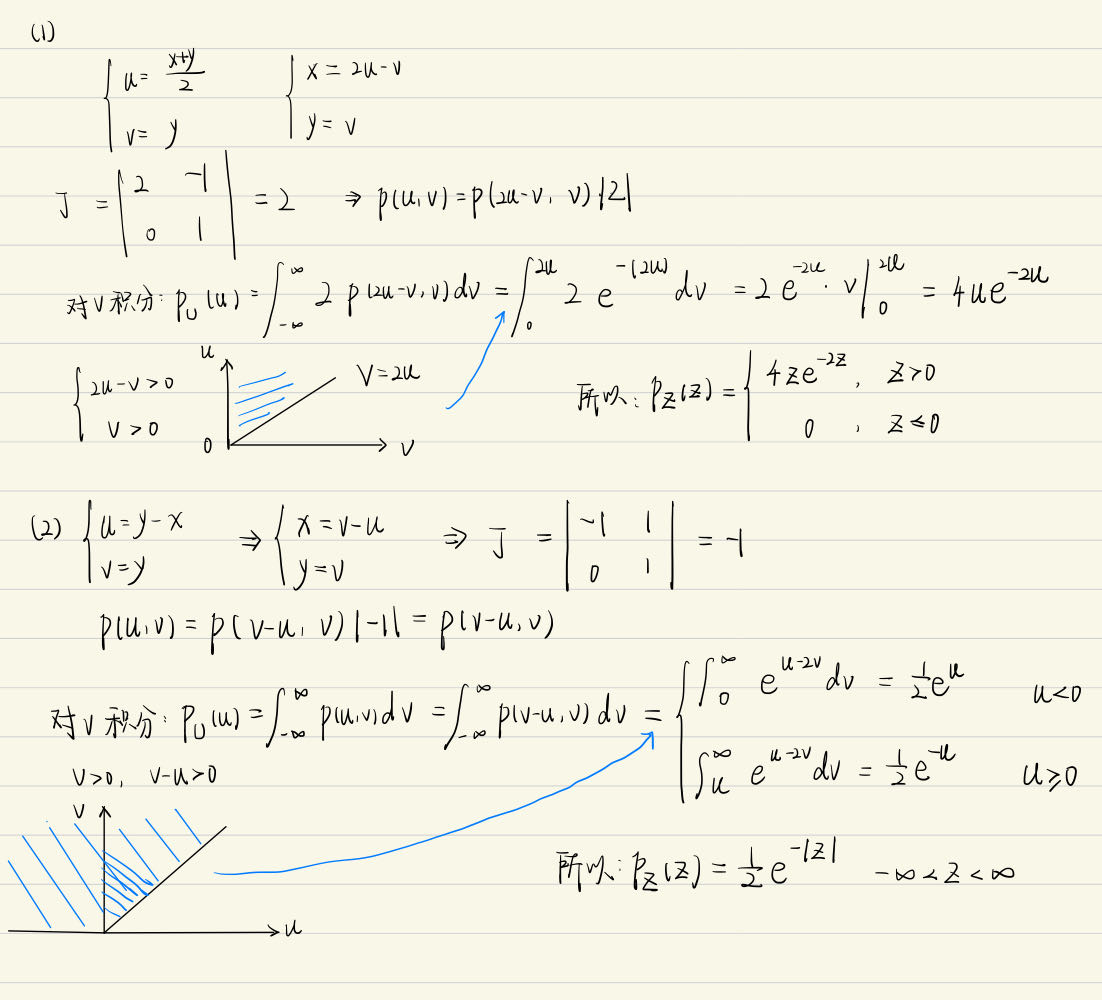 (1)
{ u = (x+y)/2    { x = 2u-v
{ v = y    { y = v
J = | 2 -1 ; 0 1 | = 2 ⇒ p(u,v) = p(2u-v, v)|2|
对v积分: p_U(u) = ∫_{-∞}^{∞} 2 p(2u-v,v)dv = ∫_0^{2u} 2 e^{-(2u)} dv = 2e^{-2u}·v|_0^{2u} = 4ue^{-2u}
{ 2u-v>0
{ v>0
u
V=2u
0
v
所以: p_Z(z) = { 4ze^{-2z}, z>0
{ 0, z≤0
(2) { u=y-x ⇒ { x=v-u ⇒ J = | -1 1 ; 0 1 | = -1
{ v=y    { y=v
p(u,v) = p(v-u, v)|-1| = p(v-u,v)
对v积分: p_U(u) = ∫_{-∞}^{∞} p(u,v)dv = ∫_{-∞}^{∞} p(v-u,v)dv = { ∫_0^{∞} e^{u-2v}dv = 1/2 e^{u}    u<0
{ ∫_u^{∞} e^{u-2v}dv = 1/2 e^{-u}    u≥0
v>0, v-u>0
v
u
所以: p_Z(z) = 1/2 e^{-|z|}    -∞<z<∞